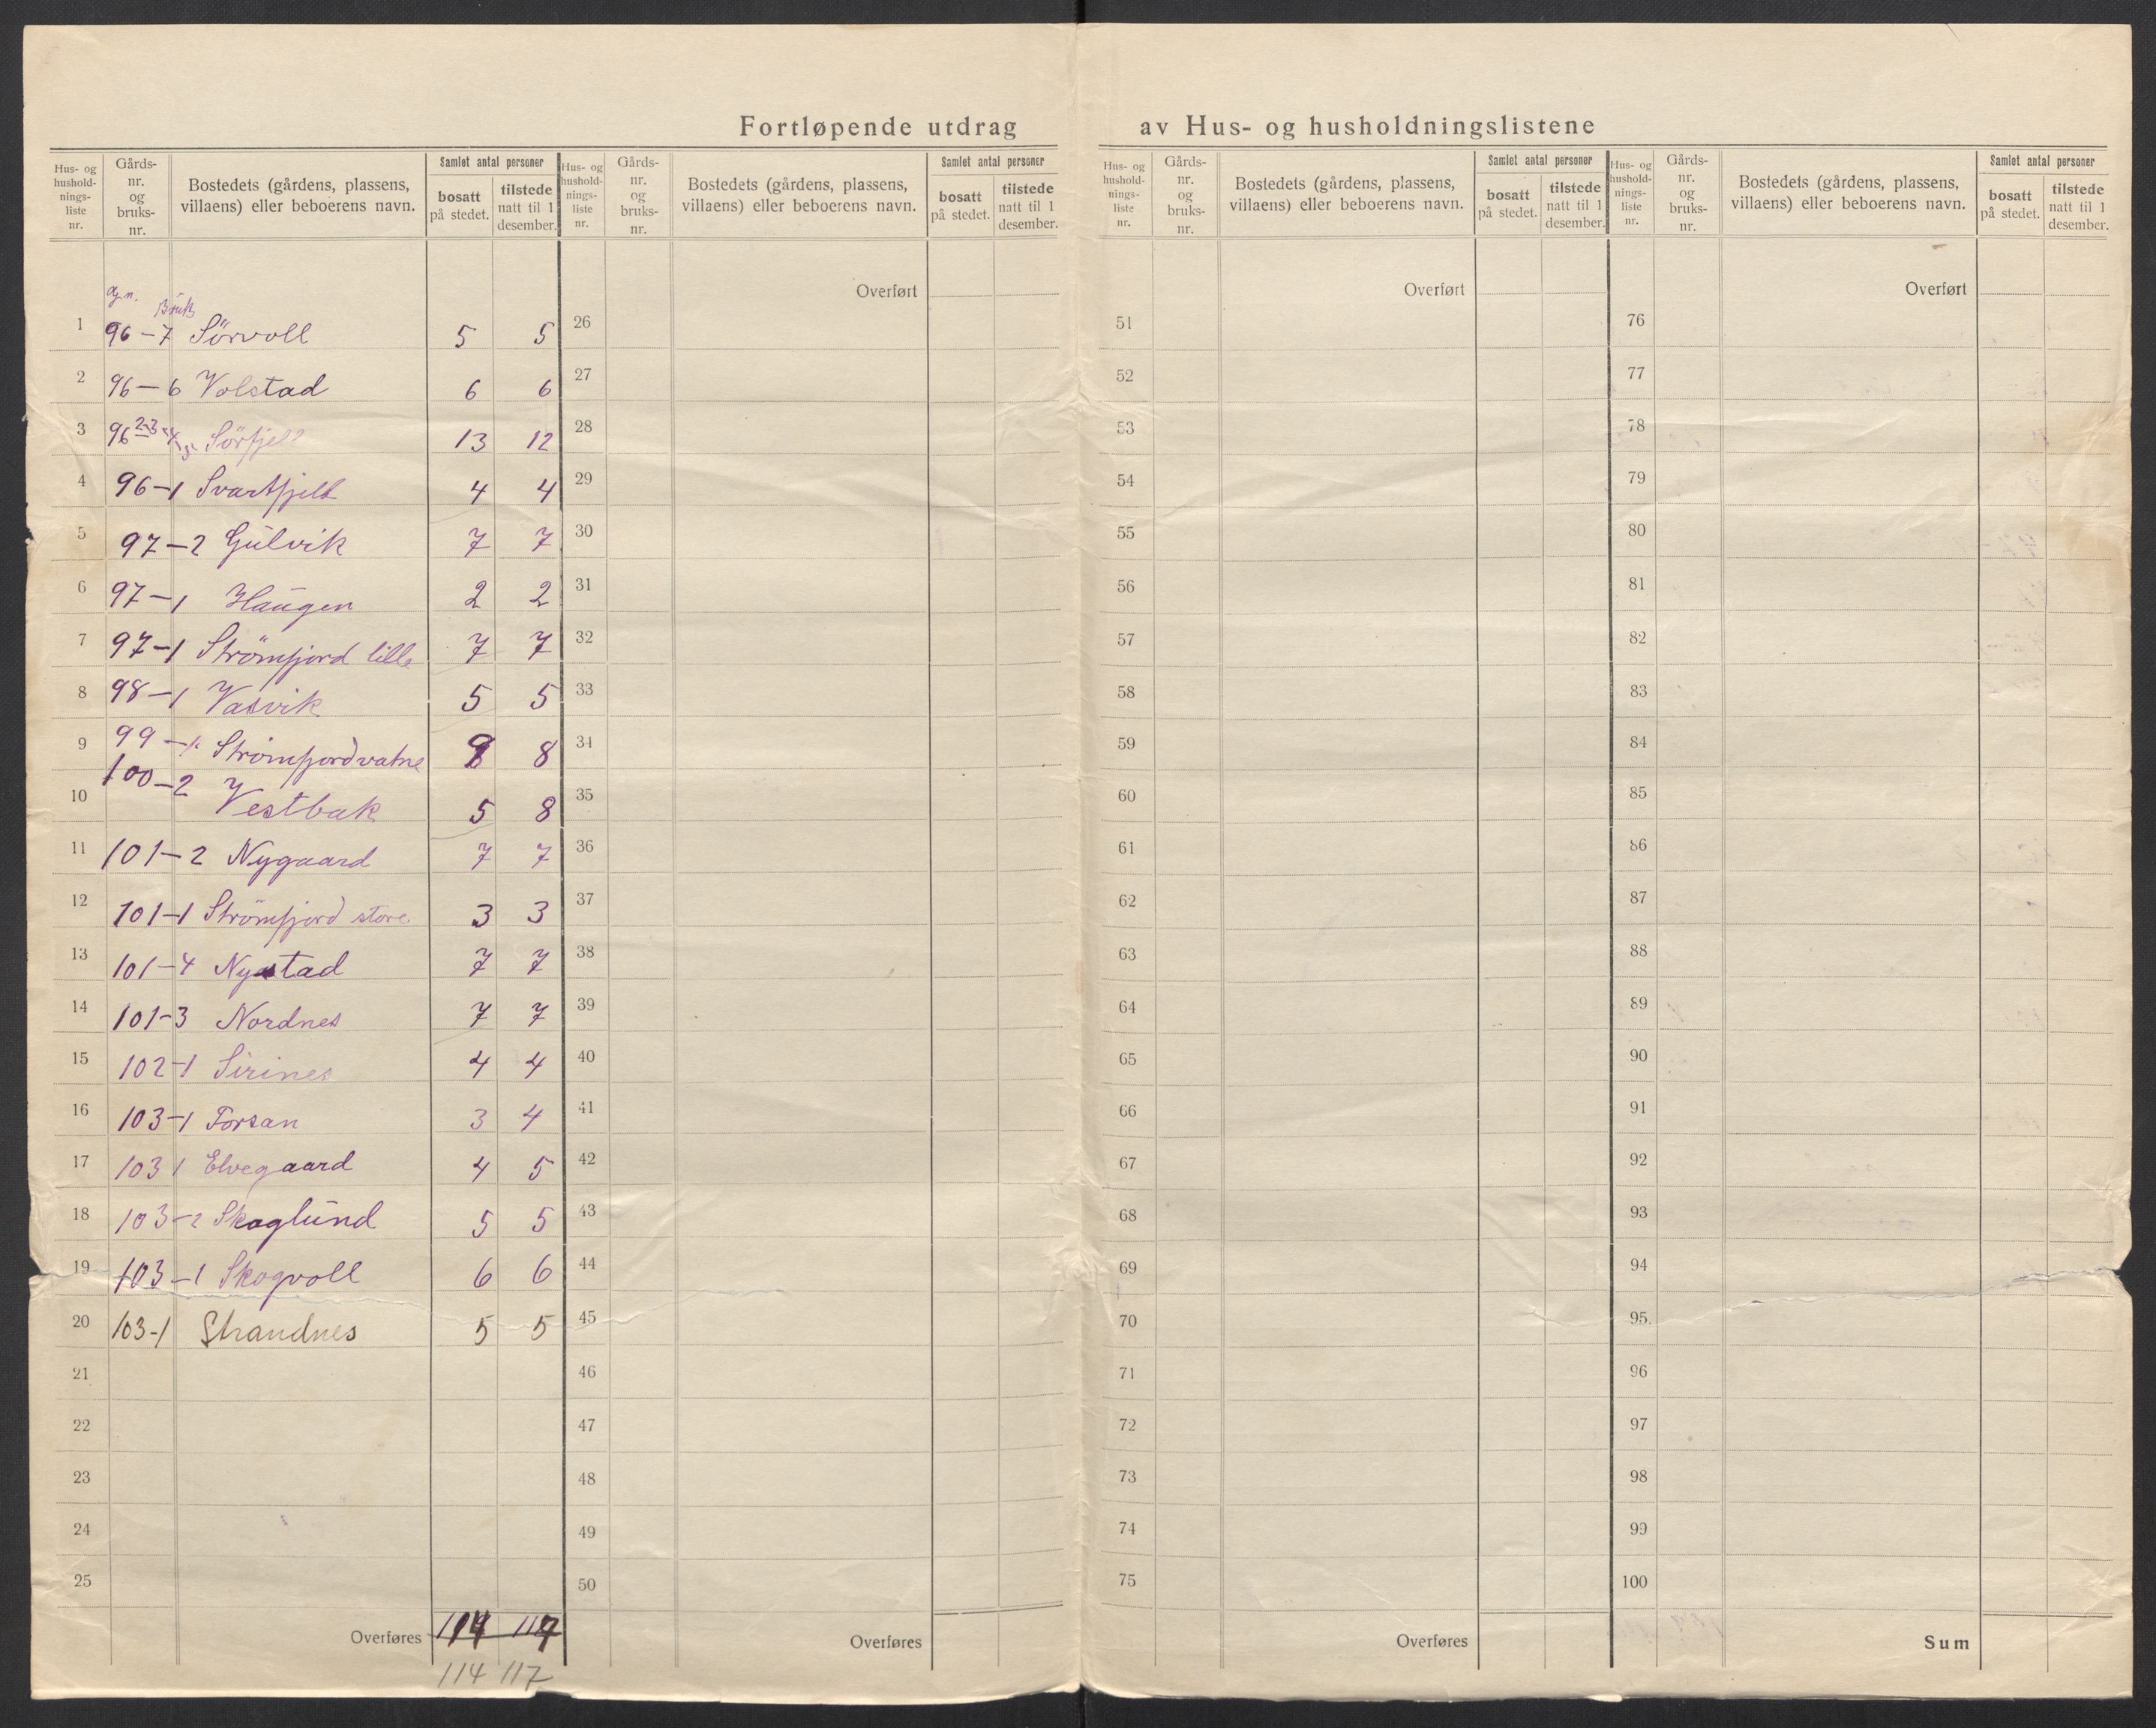 Fortløpende utdrag av Hus- og husholdningslistene
Hus- og hushold-nings-liste nr. Gårds-nr. og bruks-nr. Bostedets (gårdens, plassens, villaens) eller beboerens navn. Samlet antal personer bosatt på stedet. tilstede natt til 1 desember.
Hus- og hushold-nings-liste nr. Gårds-nr. og bruks-nr. Bostedets (gårdens, plassens, villaens) eller beboerens navn. Samlet antal personer bosatt på stedet. tilstede natt til 1 desember.
Hus- og hushold-nings-liste nr. Gårds-nr. og bruks-nr. Bostedets (gårdens, plassens, villaens) eller beboerens navn. Samlet antal personer bosatt på stedet. tilstede natt til 1 desember.
Hus- og hushold-nings-liste nr. Gårds-nr. og bruks-nr. Bostedets (gårdens, plassens, villaens) eller beboerens navn. Samlet antal personer bosatt på stedet. tilstede natt til 1 desember.
g.n. Bruk
1 96-7 Sörvoll 5 5
2 96-6 Volstad 6 6
3 96 2-3-4 Sörfjell 13 12
4 96-1 Svartfjell 4 4
5 97-2 Gulvik 7 7
6 97-1 Haugen 2 2
7 97-1 Strömfjord lille 7 7
8 98-1 Vasvik 5 5
9 99-1 Strömfjordvatne 9 8
10 100-2 Vestbak 5 8
11 101-2 Nygaard 7 7
12 101-1 Strömfjord store 3 3
13 101-4 Nystad 7 7
14 101-3 Nordnes 7 7
15 102-1 Sirines 4 4
16 103-1 Forsan 3 4
17 103 1 Elvegaard 4 5
18 103-2 Skoglund 5 5
19 103-1 Skogvoll 6 6
20 103-1 Strandnes 5 5
21
22
23
24
25
Overføres 114 117
114 117
Overført
26
27
28
29
30
31
32
33
34
35
36
37
38
39
40
41
42
43
44
45
46
47
48
49
50
Overføres
Overført
51
52
53
54
55
56
57
58
59
60
61
62
63
64
65
66
67
68
69
70
71
72
73
74
75
Overføres
Overført
76
77
78
79
80
81
82
83
84
85
86
87
88
89
90
91
92
93
94
95
96
97
98
99
100
Sum